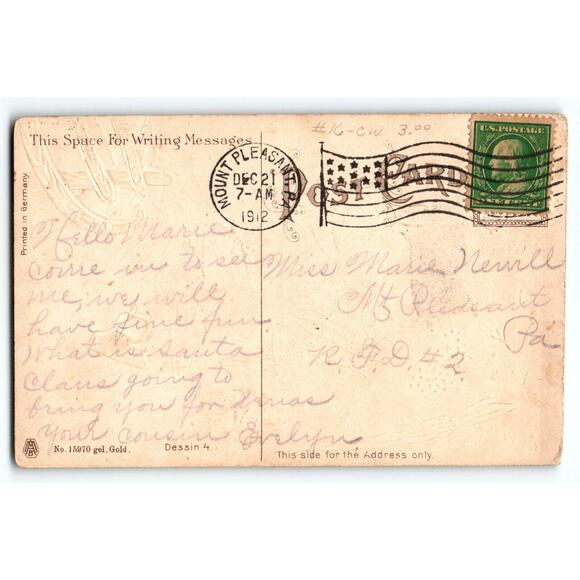 #16-CW 3.00
This Space For Writing Messages
MOUNT PLEASANT, PA.
DEC 21
7-AM
1912
POST CARD
U.S. POSTAGE
Printed in Germany.
Hello Marie
come up to see
me, we will
have fine fun.
What is Santa
Claus going to
bring you for Xmas
Your cousin Evelyn.
Miss Marie Newill
Mt Pleasant
Pa
R. F. D. #2
No. 15970 gel. Gold.
Dessin 4.
This side for the Address only.